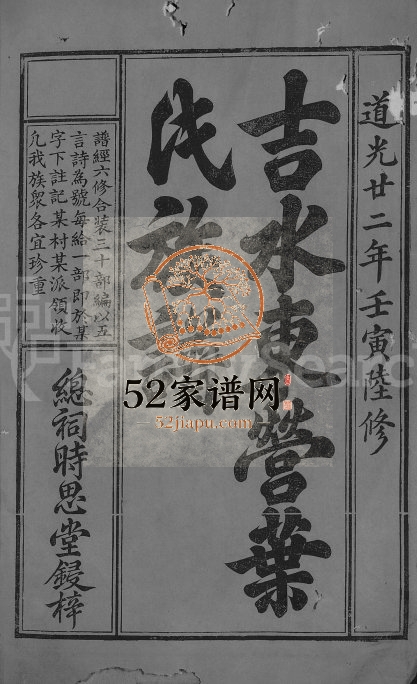 道光廿二年壬寅陸修
吉水東營葉
氏族譜
譜經六修合裝三十部編以五
言詩為號每給一部即於某
字下註記某村某派領收
凡我族眾各宜珍重
總祠時思堂鋟梓
52家谱网
52jiapu.com
FamilySearch